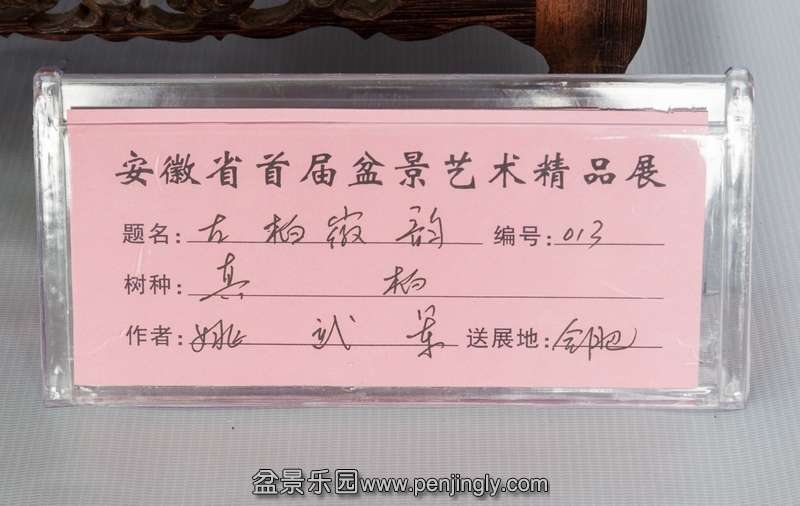 安徽省首届盆景艺术精品展
题名：古柏徽韵 编号：013
树种：真柏
作者：姚武 送展地：合肥
盆景乐园www.penjingly.com